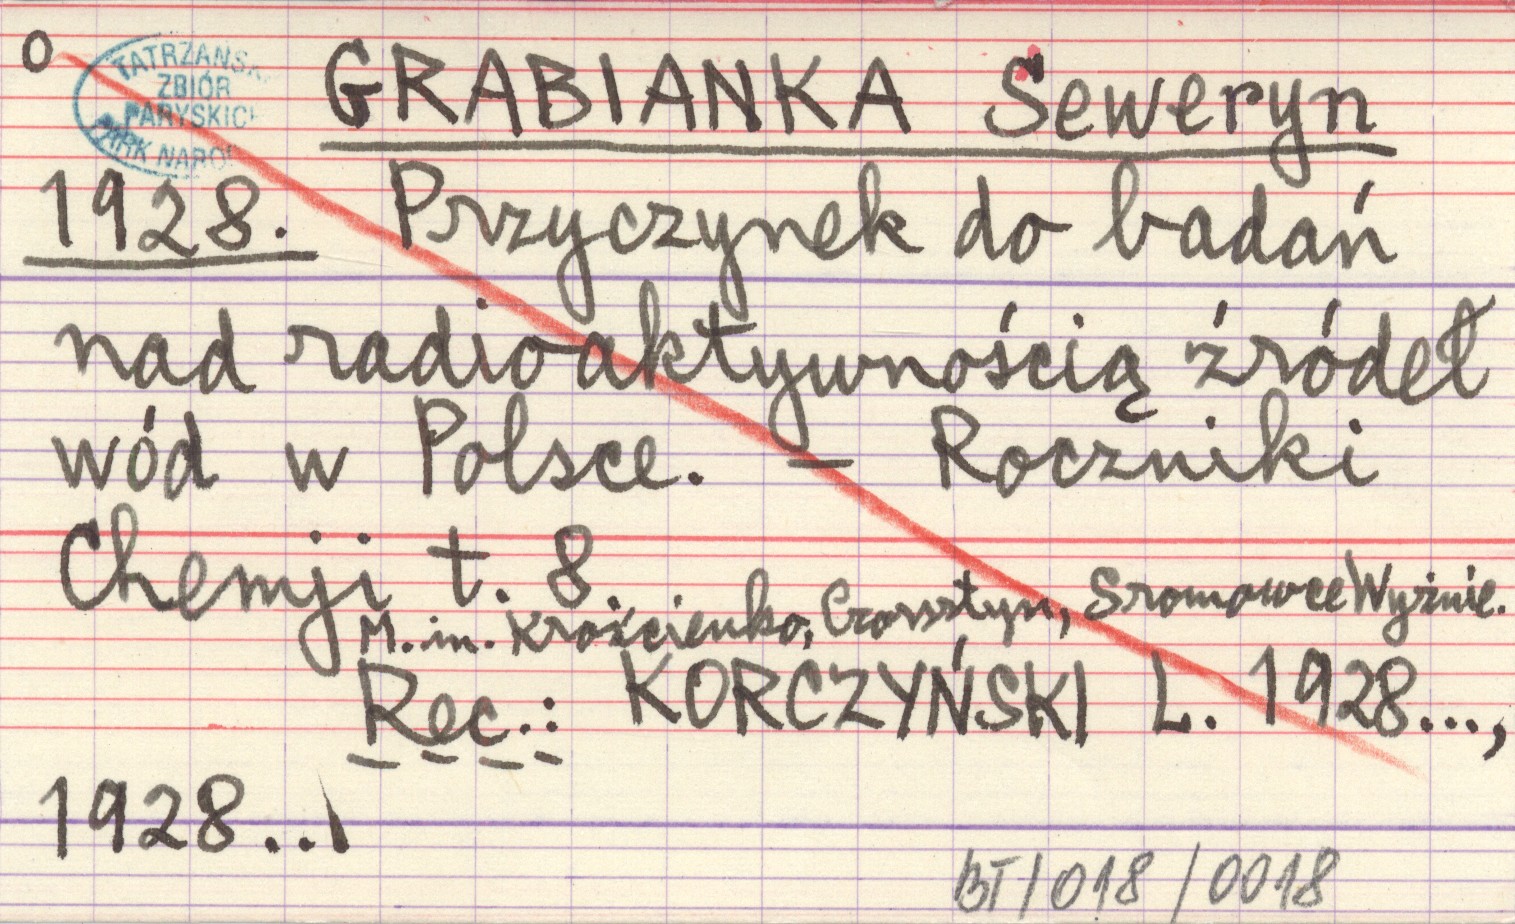 o
TATRZAŃSK
ZBIÓR
PARYSKICH
PARK NAROD
GRABIANKA Seweryn
1928. Przyczynek do badań
nad radioaktywnością źródeł
wód w Polsce. — Roczniki
Chemji t. 8.
M. in. Krościenko, Czorsztyn, Sromowce Wyżnie.
Rec.: KORCZYŃSKI L. 1928...,
1928...
BT/018/0018